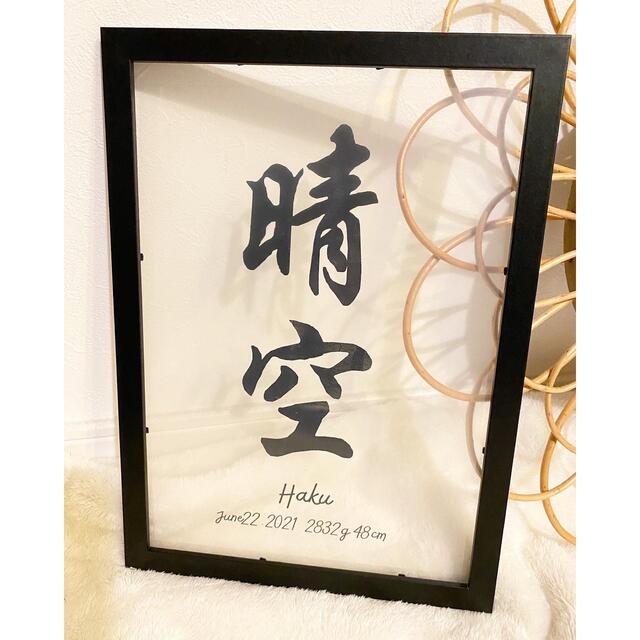 晴空
Haku
June 22. 2021 2832g 48cm